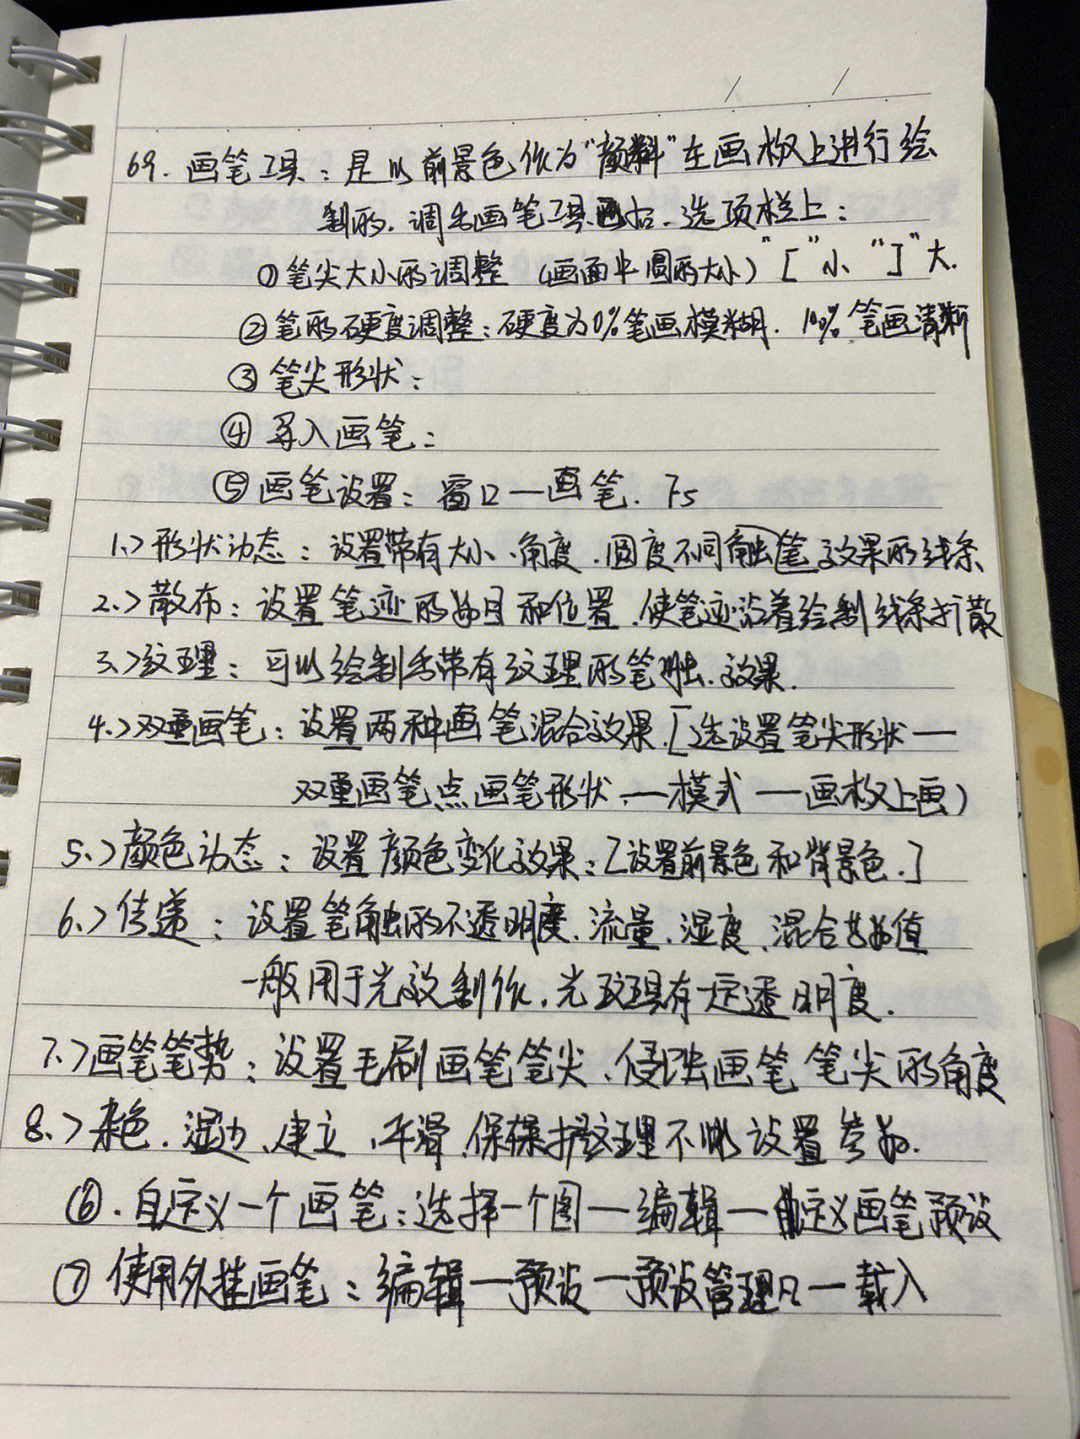 69. 画笔工具：是以前景色作为“颜料”在画板上进行绘
制的. 调出画笔工具画后. 选项栏上：
①笔尖大小的调整 (画面中圆的大小) “[”小 “]”大.
②笔的硬度调整：硬度为0%笔画模糊. 100%笔画清晰
③笔尖形状：
④导入画笔：
⑤画笔设置：窗口—画笔. F5
1.>形状动态：设置带有大小、角度.圆度不同触笔效果的线条
2.>散布：设置笔迹的数目和位置.使笔迹沿着绘制线条扩散
3.>纹理：可以绘制出带有纹理的笔触.效果.
4.>双重画笔：设置两种画笔混合效果.[选设置笔尖形状—
双重画笔点画笔形状.—模式—画板上画)
5.>颜色动态：设置颜色变化效果：[设置前景色和背景色.]
6.>传递：设置笔触的不透明度.流量.湿度.混合等数值
一般用于光效制作.光效具有一定透明度.
7.>画笔笔势：设置毛刷画笔笔尖.侵蚀画笔笔尖的角度
8.>杂色.湿边.建立.平滑.保护纹理不设置参数.
⑥.自定义一个画笔：选择一个图—编辑—自定义画笔预设
⑦使用外挂画笔：编辑—预设—预设管理—载入